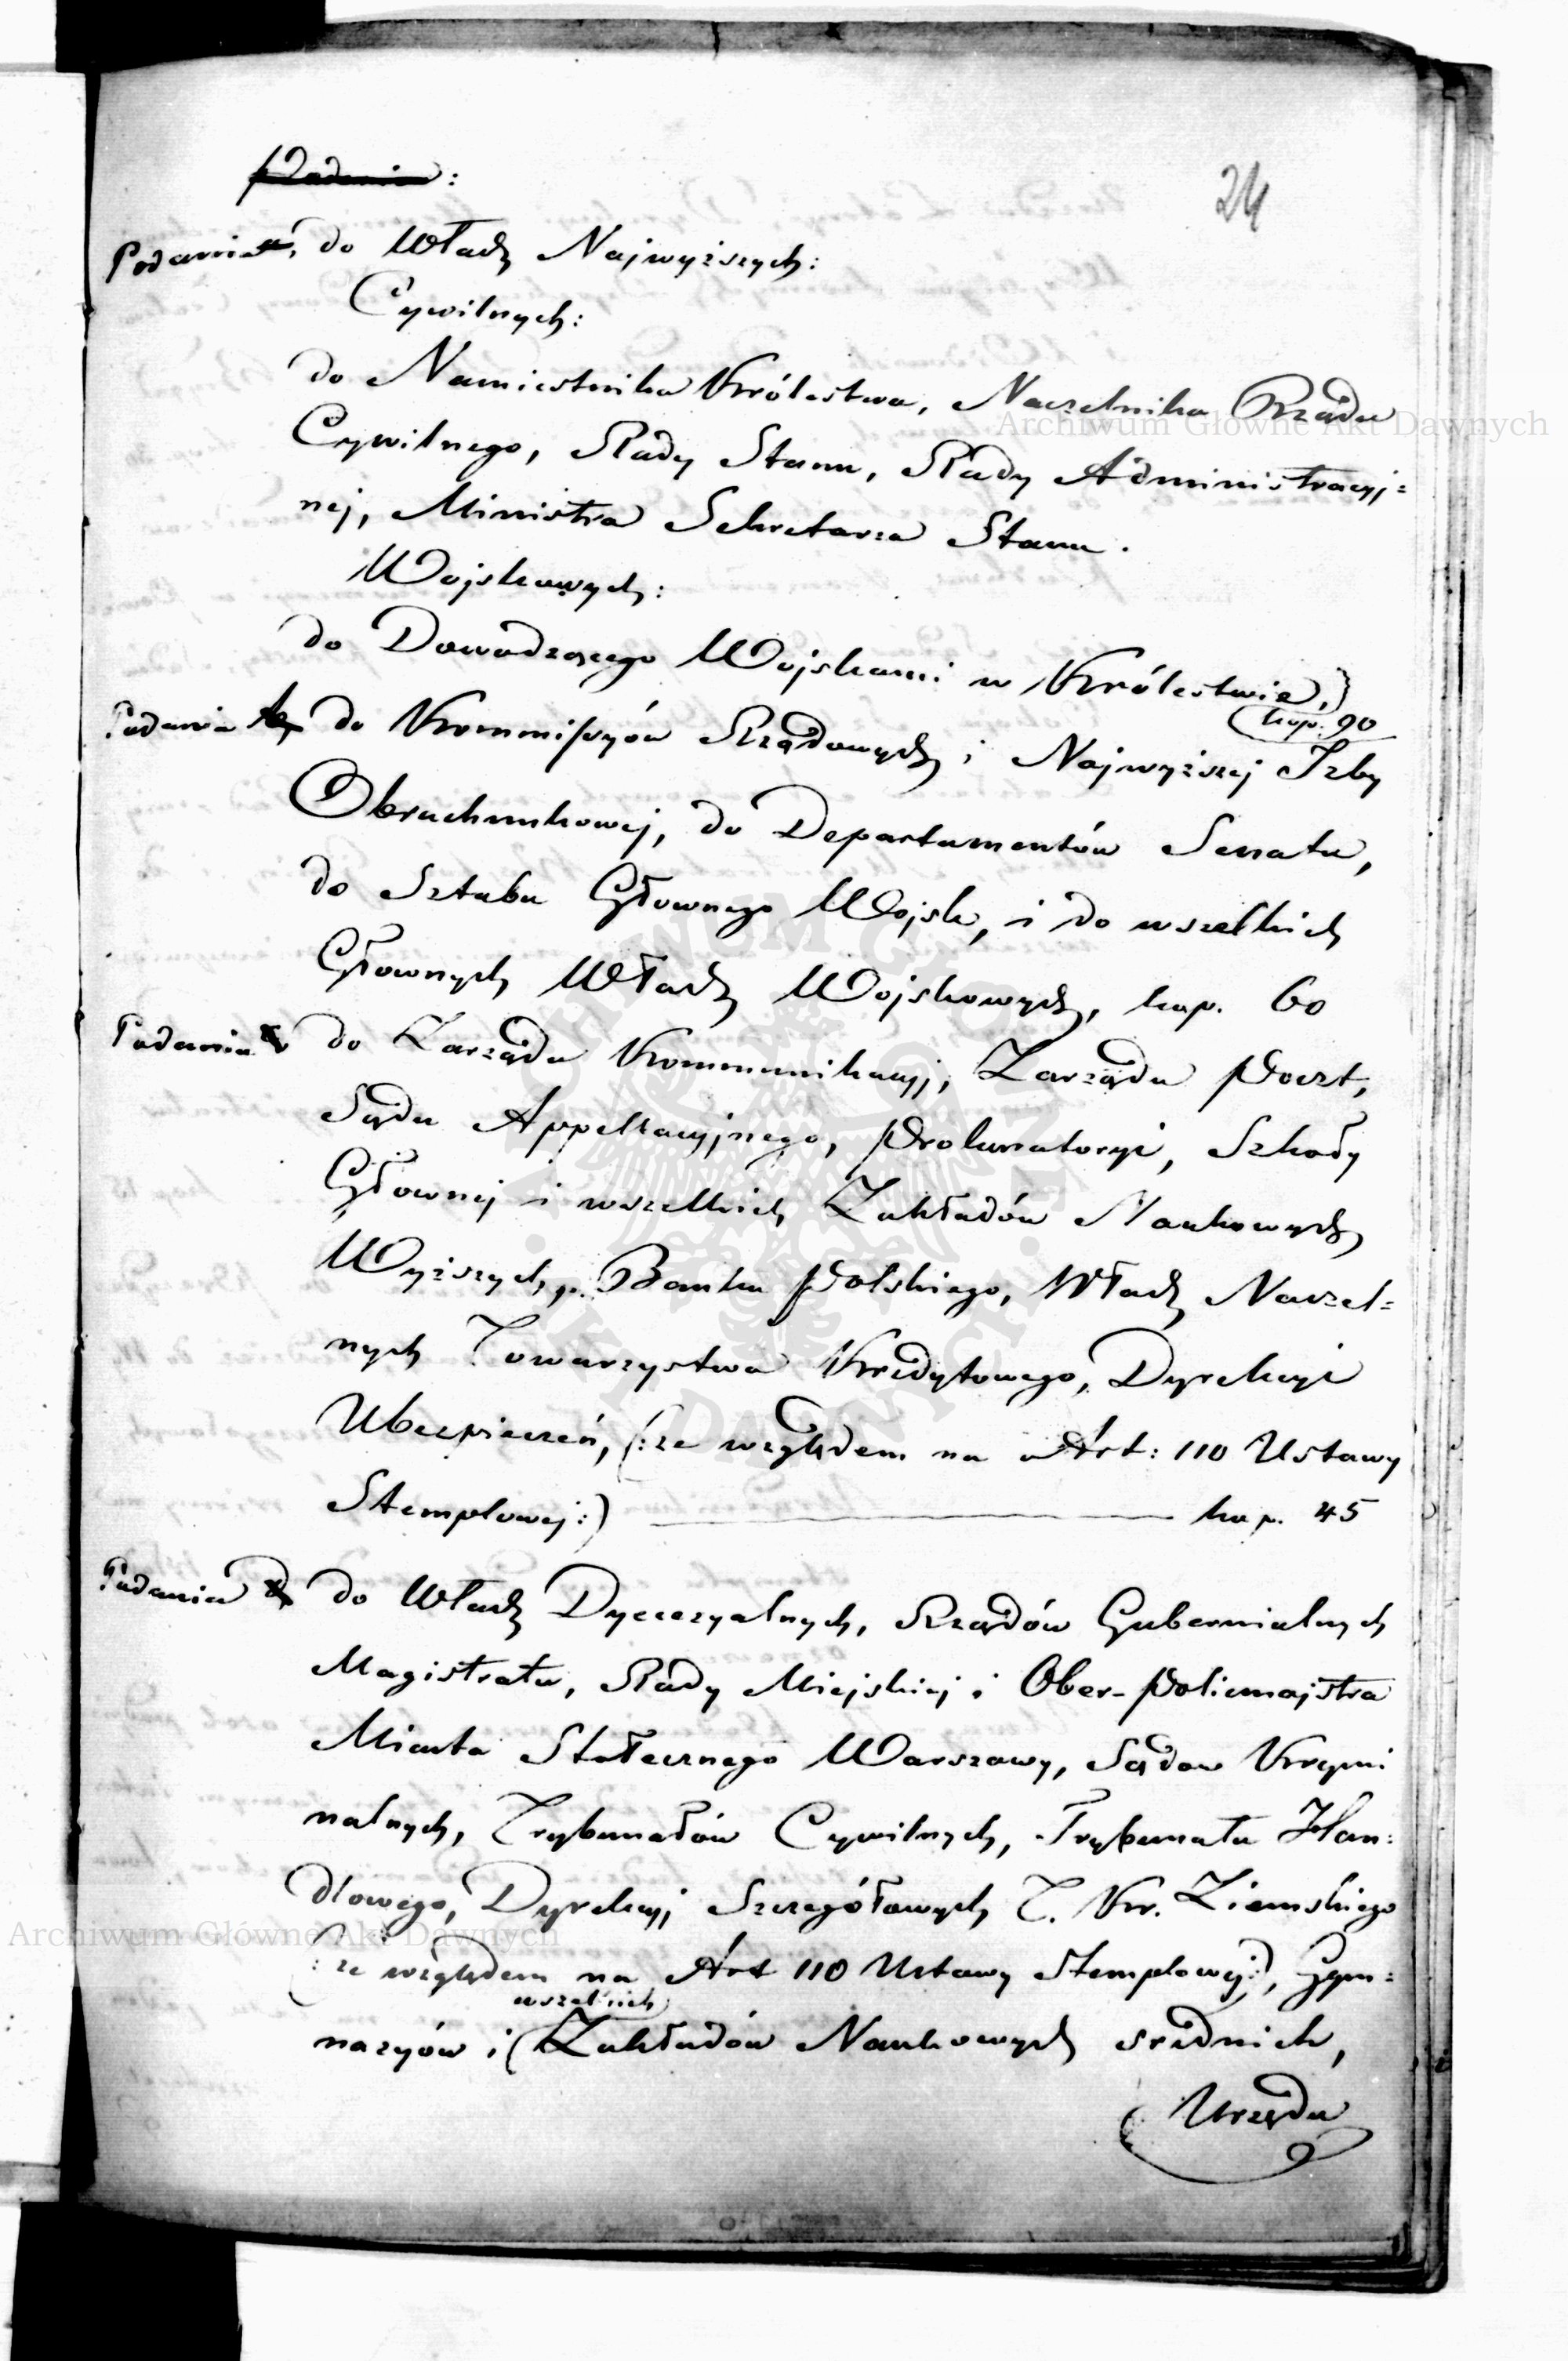 24
Podania:
Podania, do Władz Najwyższych:
Cywilnych:
do Namiestnika Królestwa, Naczelnika Rządu
Cywilnego, Rady Stanu, Rady Administracyj=
nej, Ministra Sekretarza Stanu.
Wojskowych:
do Dowodzącego Wojskami w Królestwie,
kop. 90
Podania do Kommissyów Rządowych i Najwyższej Izby
Obrachunkowej, do Departamentów Senatu,
do Sztabu Głownego Wojsk, i do wszelkich
Głownych Władz Wojskowych, kop. 60
Podania do Zarządu Kommunikacyj, Zarządu Poczt,
Sądu Appellacyjnego, Prokuratoryi, Szkoły
Głownej i wszelkich Zakładów Naukowych
Wyższych, Banku Polskiego, Władz Naczel=
nych Towarzystwa Kredytowego, Dyrekcyi
Ubezpieczeń, (:ze względem na Art: 110 Ustawy
Stemplowej:) kop. 45
Podania do Władz Dyecezyalnych, Rządów Gubernialnych
Magistratu, Rady Miejskiej i Ober-Policmajstra
Miasta Stołecznego Warszawy, Sądow Krymi
nalnych, Trybunałów Cywilnych, Trybunału Han=
dlowego, Dyrekcyj Szczegółowych T. Kr. Ziemskiego
(:ze względem na Art 110 Ustawy Stemplowej:), Gym=
wszelkich
nazyów i Zakładów Naukowych srednich,
Urzędu
Archiwum Główne Akt Dawnych
Archiwum Główne Akt Dawnych
ARCHIWUM GŁÓWNE AKT DAWNYCH